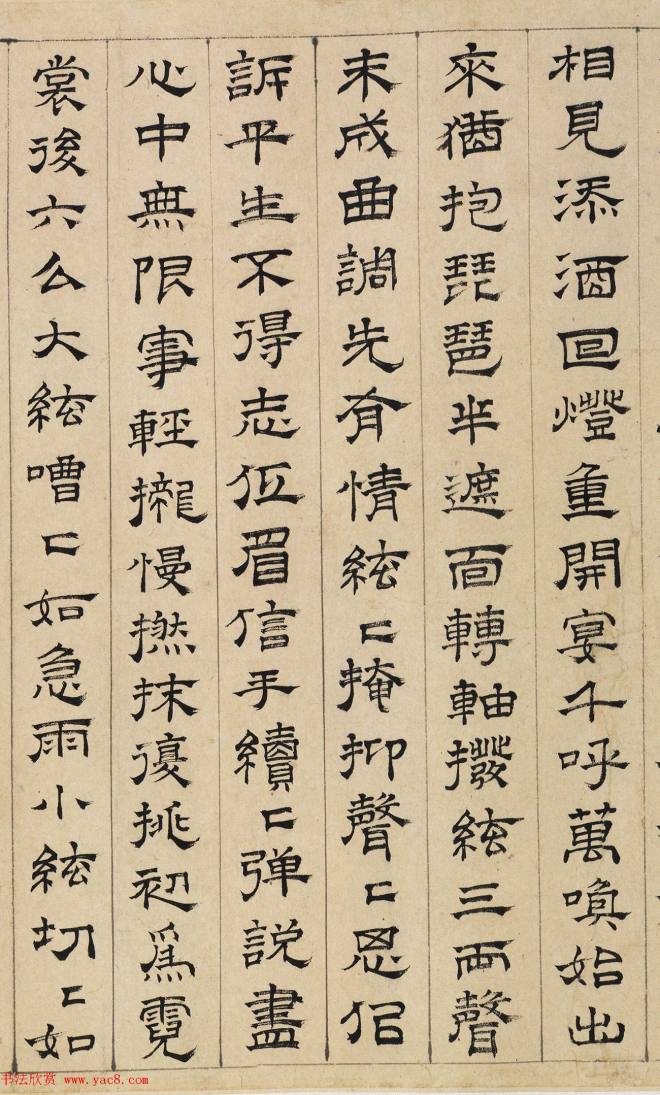 相見添酒回燈重開宴千呼萬喚始出
來猶抱琵琶半遮面轉軸撥絃三兩聲
未成曲調先有情絃〻掩抑聲〻思佀
訴平生不得志低眉信手續〻彈説盡
心中無限事輕攏慢撚抹復挑初爲霓
裳後六么大絃嘈〻如急雨小絃切〻如
书法欣赏 www.yac8.com